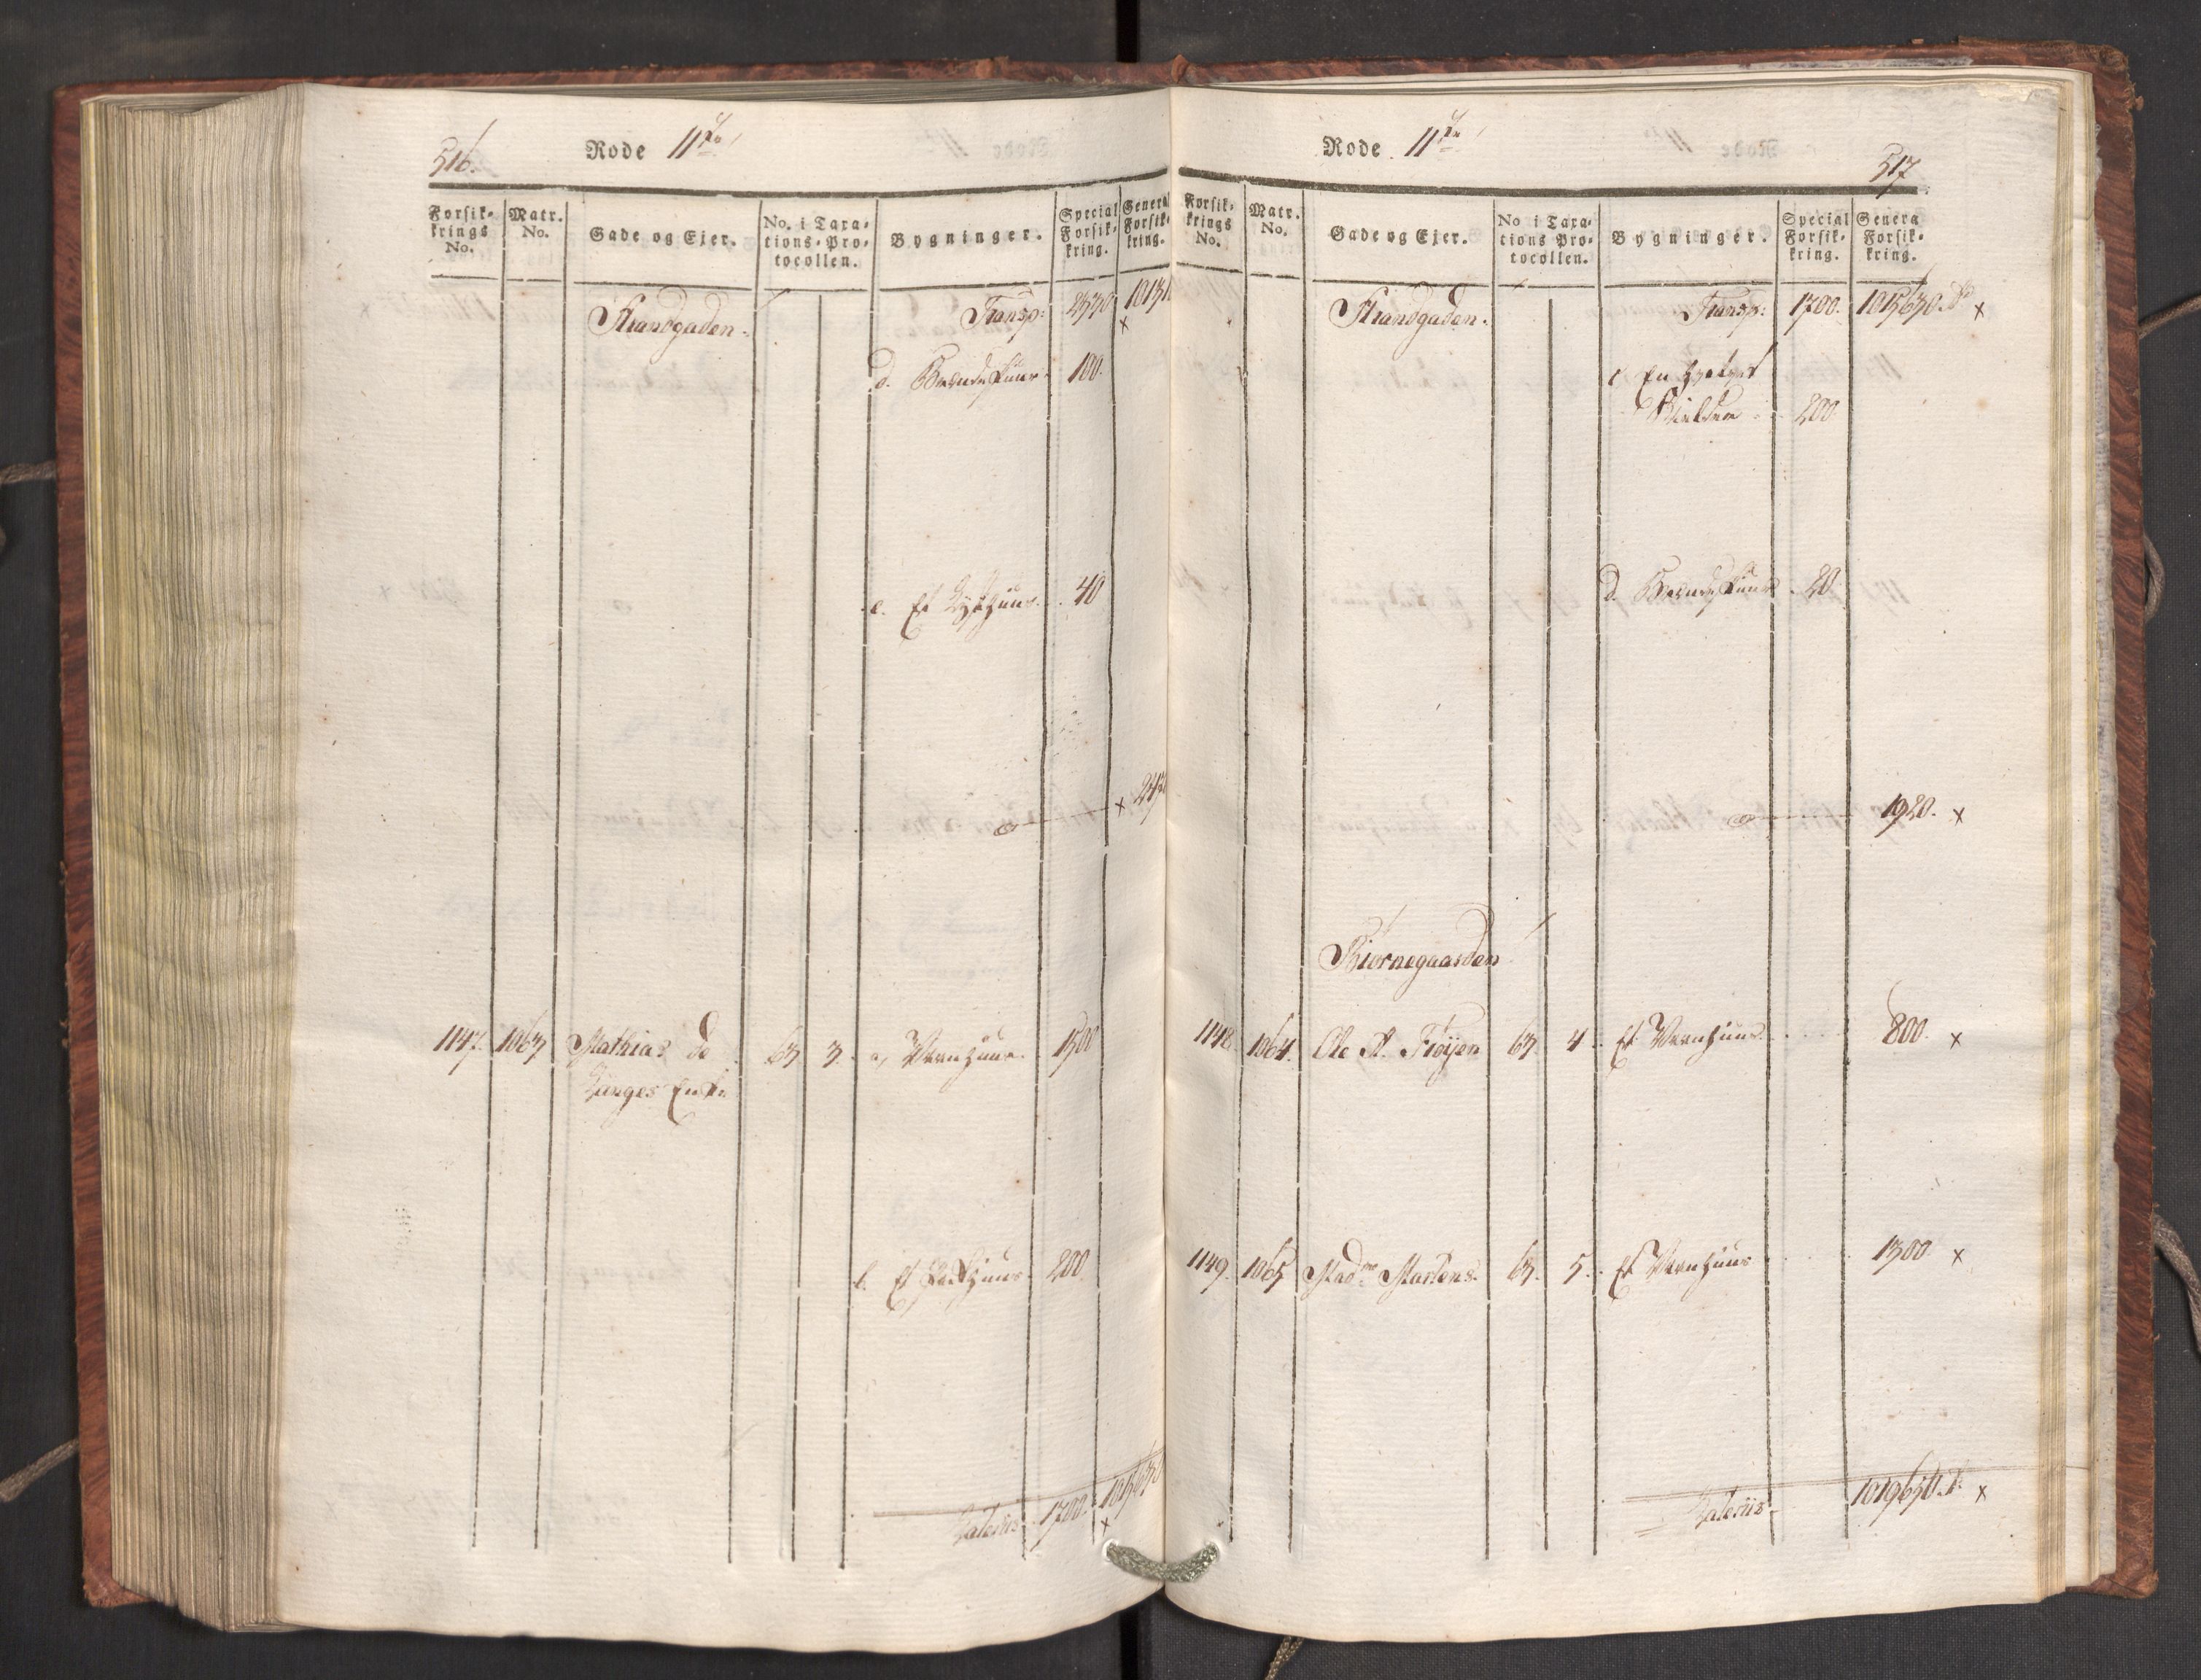 516.
Rode 11te
Forsik-
krings
No.
Matr.
No.
Gade og Ejer.
No. i Taxa-
tions-Pro-
tocollen.
Bygninger.
Special
Forsik-
kring.
General
Forsik-
kring.
Strandgaden. Transp: 2330
d. Brændeskuur. 100.
c. Et Lysthuus. 40
1147. 1063 Mathias de 63 3. a, Vaanhuus. 1500
Langes Enke
b. Et Pakhuus. 200
Lateris 1700.
517
Rode. 11te
Forsik-
krings
No.
Matr.
No.
Gade og Ejer.
No i Taxa-
tions Pro-
tocollen.
Bygninger.
Special
Forsik-
kring.
Genera
Forsik-
kring.
Strandgaden. Transp: 1700. x
200.
d. Brændeskuur. 20.
1920. x
Biørnegaarden
1148. 1064. Ole A. Frøyen 63. 4. Et Vaanhuus 800. x
1149. 1065 Madme Martens. 63. 5. Et Vaanhuus 1300 x
Lateris 1019650. x